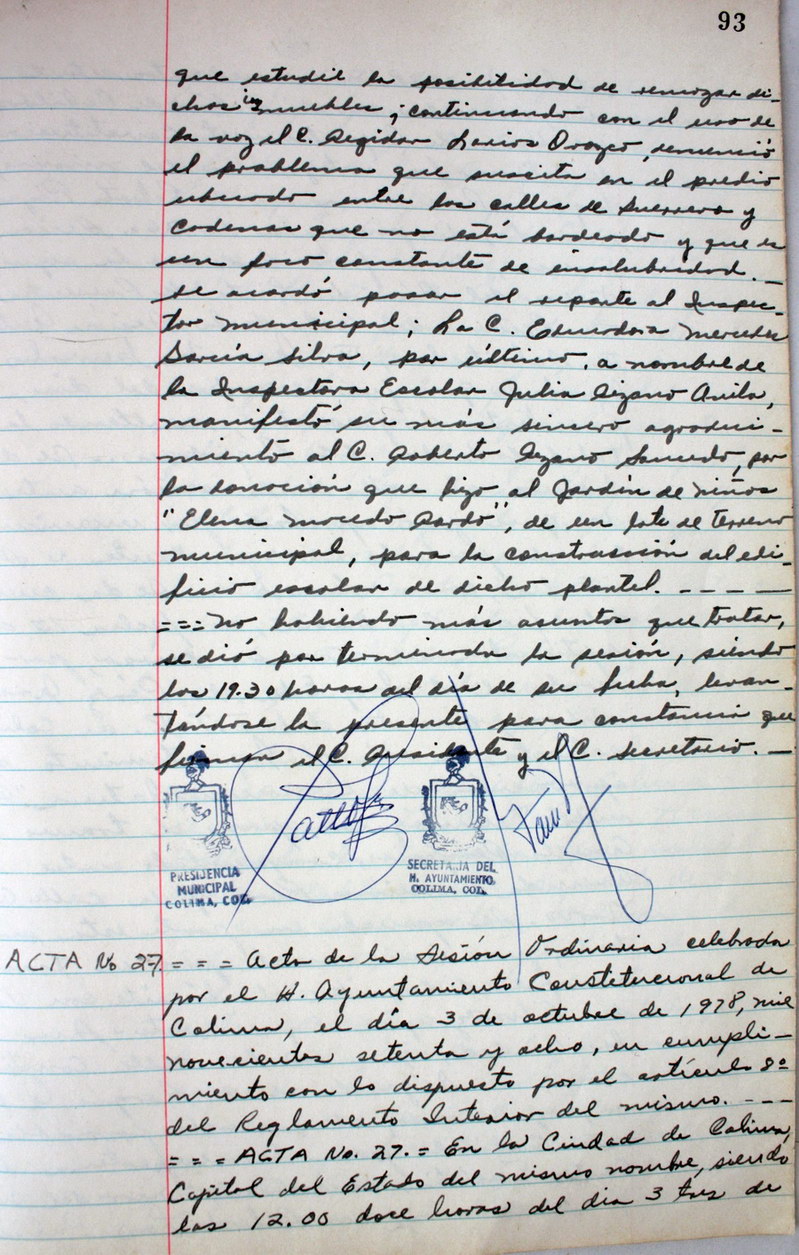 93
que estudie la posibilidad de remozar di-
chos inmuebles; continuando con el uso de
la voz el C. Regidor Larios Orozco, denunció
el problema que suscita en el predio
ubicado entre las calles de Guerrero y
Codenas que no está bardeado y que es
un foco constante de insalubridad. _
se acordó pasar el reporte al Inspec-
tor municipal; La C. Educadora Mercedes
García Silva, por último, a nombre de
la Inspectora Escolar Julia Lizano Avila,
manifestó su más sincero agradeci-
miento al C. Roberto Lizano, por
la donación que hizo al Jardín de niños
"Elena Macedo", de un lote de terreno
municipal, para la construcción del edi-
ficio escolar de dicho plantel. - - - -
=== No habiendo más asuntos que tratar,
se dió por terminada la sesión, siendo
las 19.30 horas del día de su fecha, levan-
tándose la presente para constancia que
firman el C. Presidente y el C. Secretario. _
PRESIDENCIA
MUNICIPAL
COLIMA, COL.
SECRETARIA DEL
H. AYUNTAMIENTO
COLIMA, COL.
ACTA No 27. = = = Acta de la Sesión Ordinaria celebrada
por el H. Ayuntamiento Constitucional de
Colima, el día 3 de octubre de 1978, mil
novecientos setenta y ocho, en cumpli-
miento con lo dispuesto por el artículo 8º
del Reglamento Interior del mismo. - - -
= = = ACTA No. 27. = En la Ciudad de Colima,
Capital del Estado del mismo nombre, siendo
las 12.00 doce horas del día 3 tres de